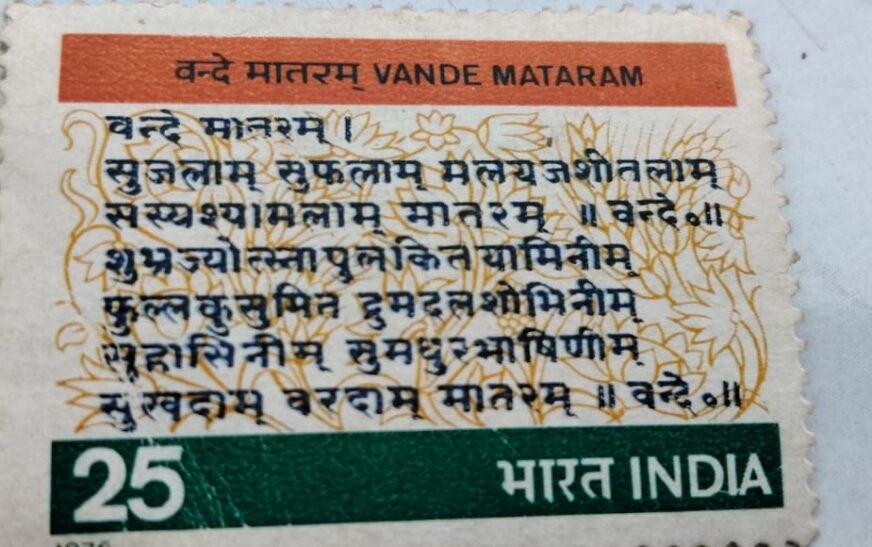 वन्दे मातरम् VANDE MATARAM
वन्दे मातरम् ।
सुजलाम् सुफलाम् मलयजशीतलाम्
सस्यश्यामलाम् मातरम् ॥ वन्दे॰॥
शुभ्रज्योत्स्नापुलकितयामिनीम्
फुल्लकुसुमित द्रुमदलशोभिनीम्
सुहासिनीम् सुमधुरभाषिणीम्
सुखदाम् वरदाम् मातरम् ॥ वन्दे॰॥
25 भारत INDIA